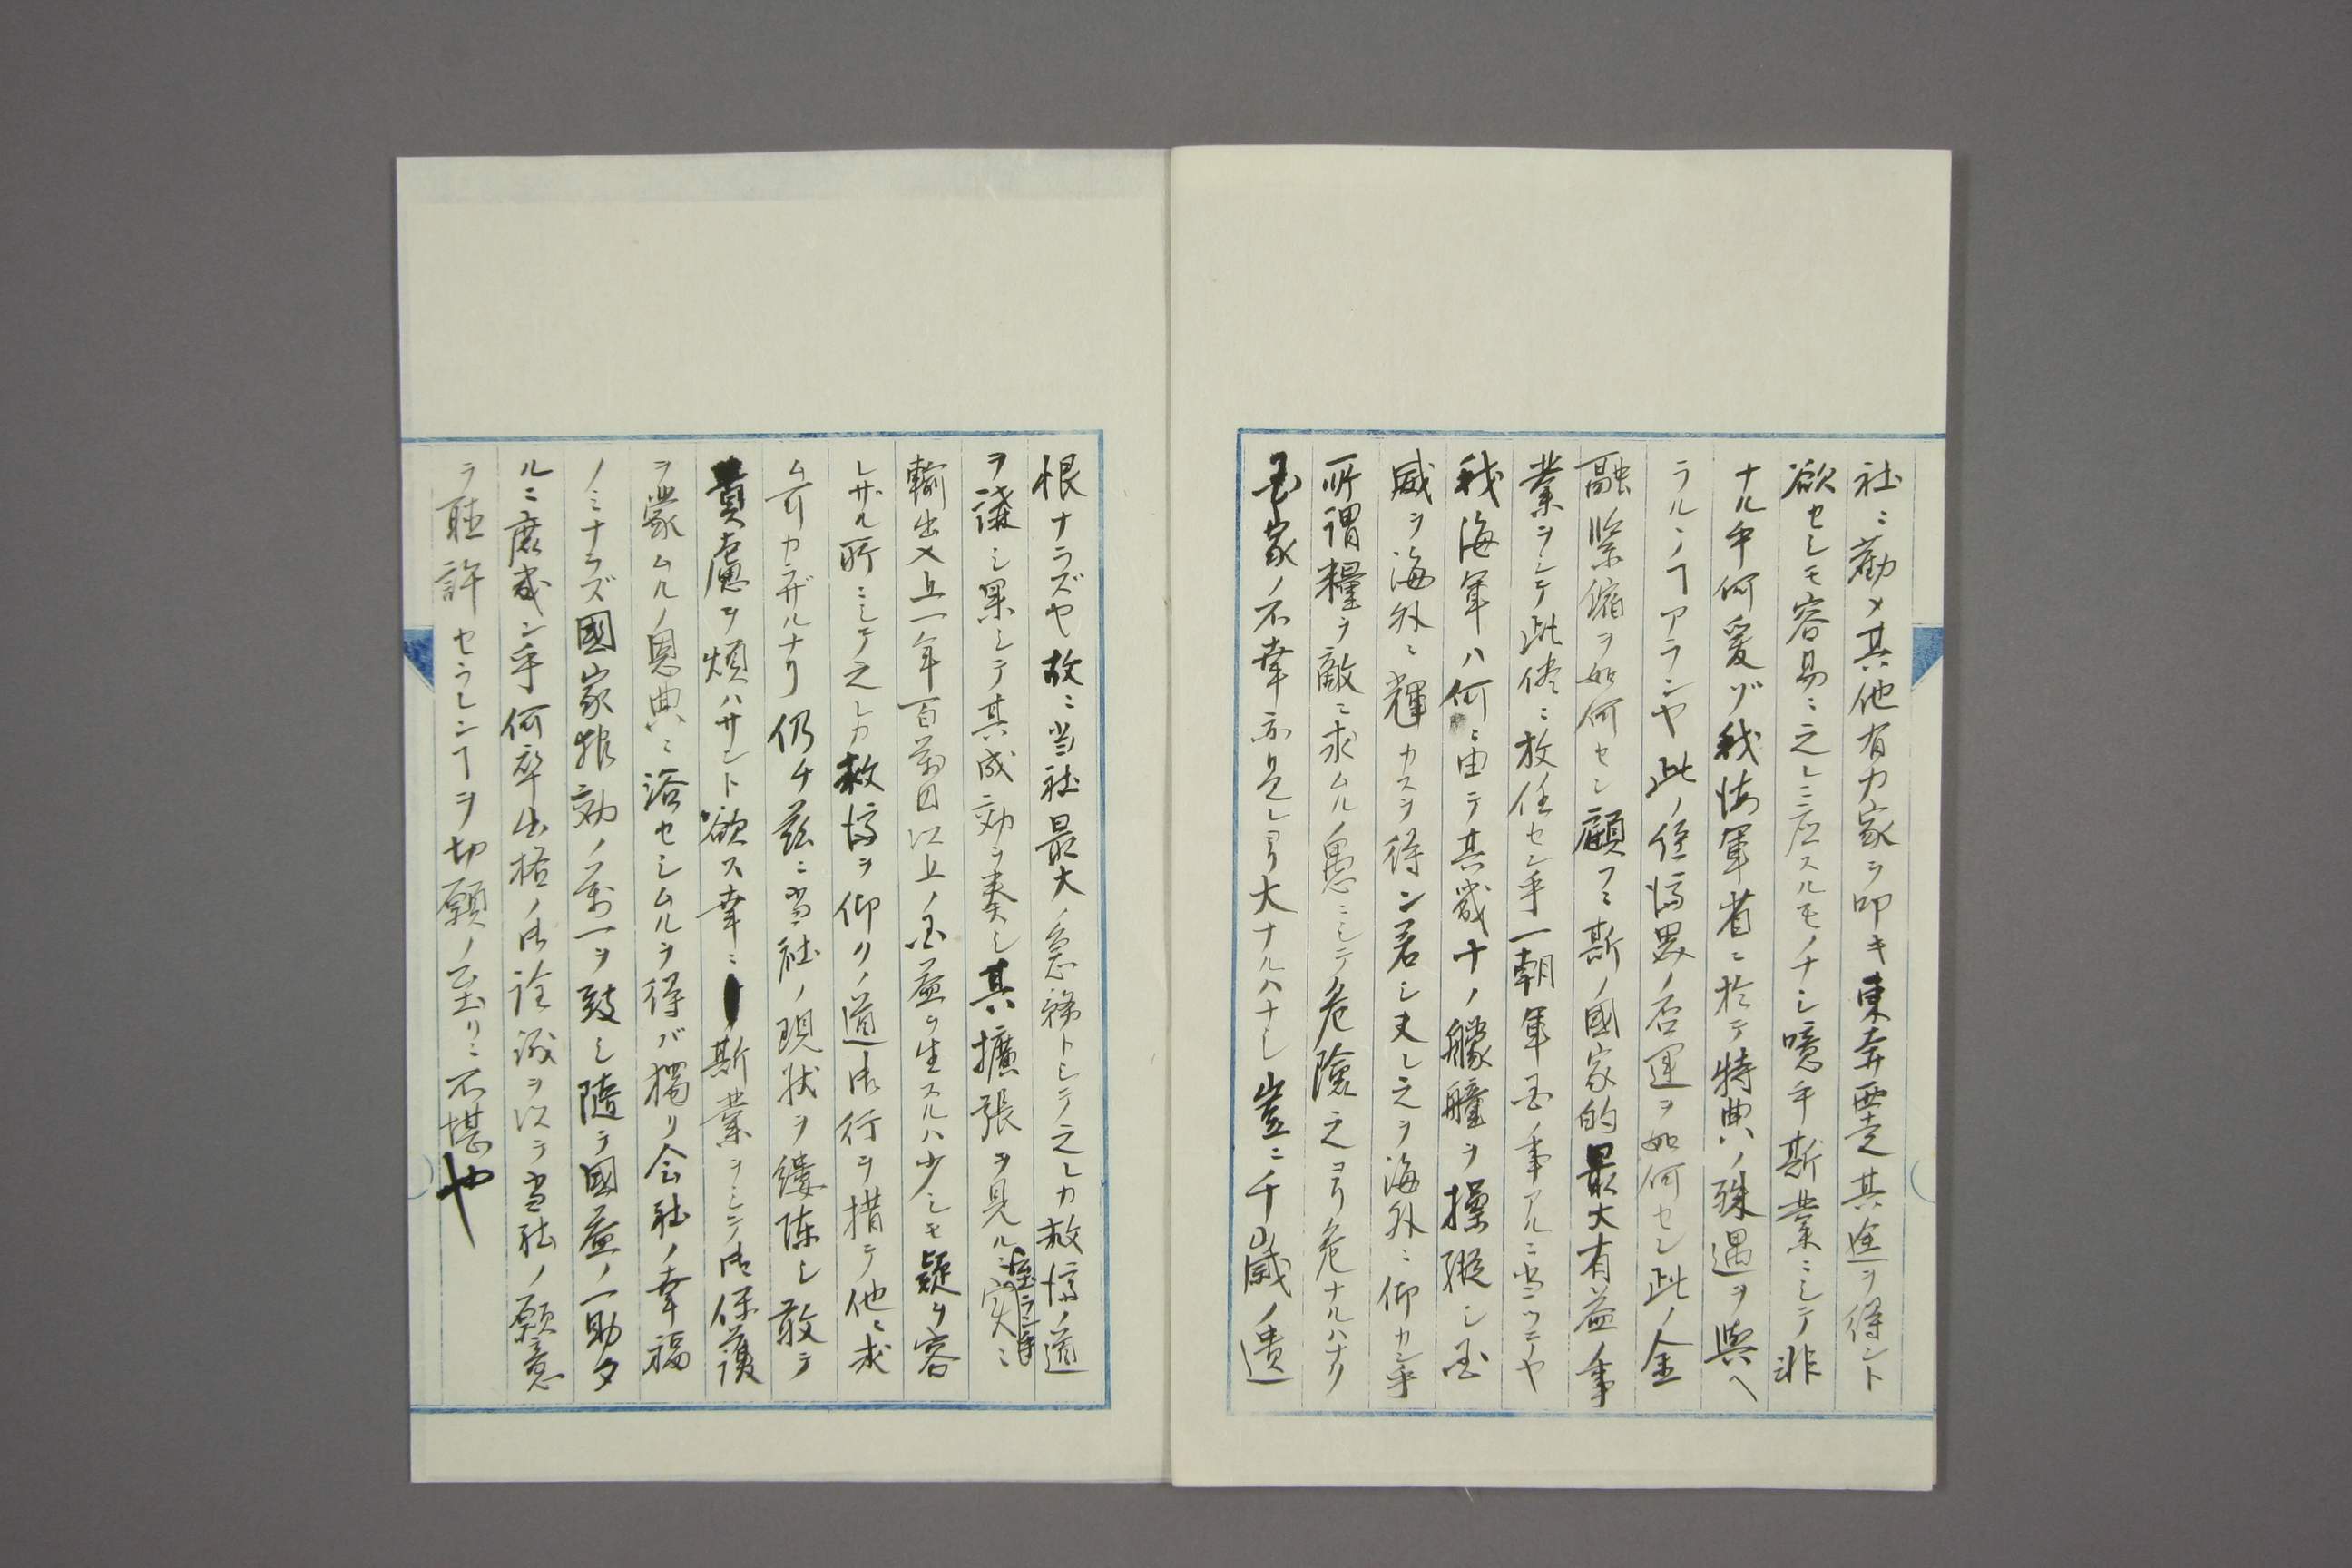 社ニ勸メ其他有力家ヲ叩キ東奔西走其途ヲ得ント
欲セシモ容易ニ之レニ応スルモノナシ噫乎斯業ニシテ非
ナル乎何爰ゾ我海軍省ニ於テ特典ノ殊遇ヲ與ヘ
ラルヽノヿアランヤ此ノ経済界ノ否運ヲ如何セン此ノ金
融緊縮ヲ如何セン顧フニ斯ノ國家的最大有益ノ事
業ヲシテ此儘ニ放任セン乎一朝軍国ノ事アルニ当ツテヤ
我海軍ハ何ニ由テ其幾十ノ艨艟ヲ操縦シ国
威ヲ海外ニ輝カスヲ得ン若シ夫レ之ヲ海外ニ仰カン乎
所謂糧ヲ敵ニ求ムルノ愚ニシテ危険之ヨリ危ナルハナリ
国家ノ不幸亦是レヨリ大ナルハナシ豈ニ千歳ノ遺
恨ナラズヤ故ニ当社最大ノ急務トシテ之レカ救済ノ道
ヲ講シ果シテ其成効ヲ奏シ其擴張ヲ見ルニ至ラン乎実ニ
輸出入上一年百萬円以上ノ国益ヲ生スルハ少シモ疑ヲ容
レザル所ニシテ之レカ救済ヲ仰クノ道御行ヲ措テ他ニ求
ム可カラザルナリ仍チ茲ニ当社ノ現状ヲ縷陳シ敢テ
貴慮ヲ煩ハサント欲ス幸ニ斯業ヲシテ御保護
ヲ蒙ムルノ恩典ニ浴セシムルヲ得バ獨リ会社ノ幸福
ノミナラズ國家報効ノ萬一ヲ致シ随テ國益ノ一助タ
ルニ庶幾ン乎何卒出格ノ御詮議ヲ以テ当社ノ願意
ヲ聴許セラレンヿヲ切願ノ至リニ不堪也